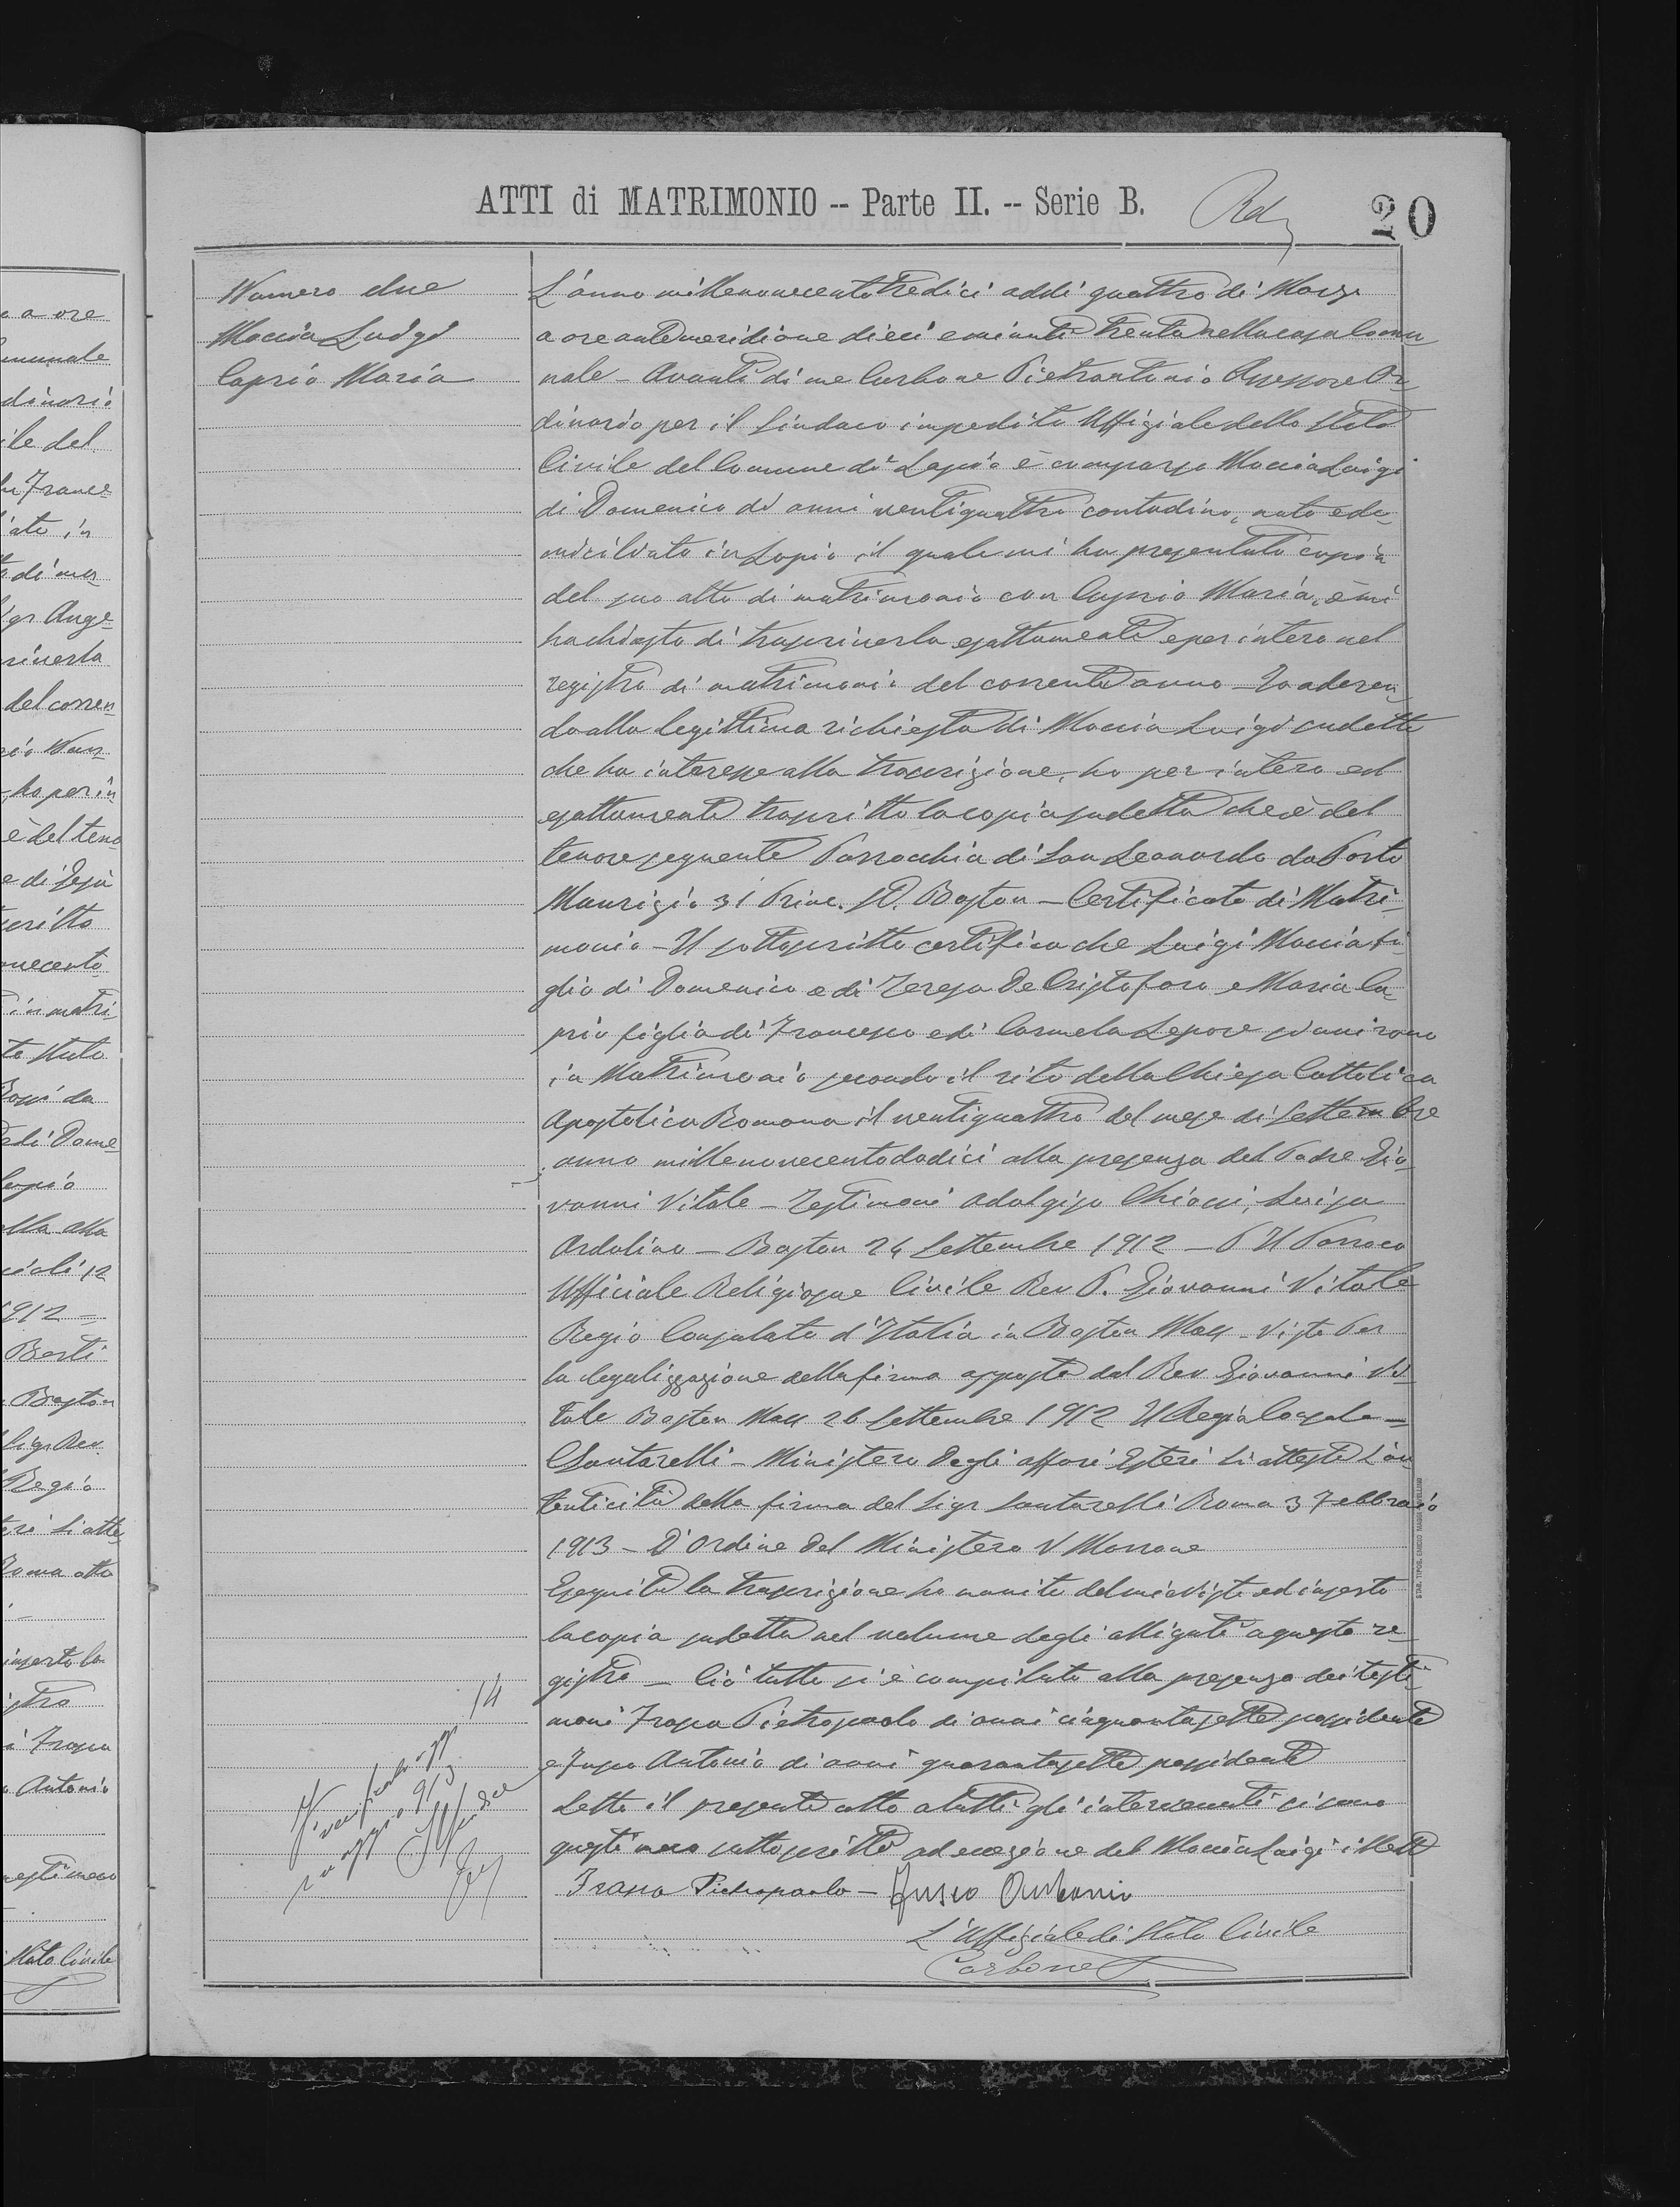 ATTI di MATRIMONIO -- Parte II. -- Serie B.
20
Numero due
Moccia Luigi
Caprio Maria
L'anno millenovecentotredici addi quattro di Marzo
a ore antimeridiane dieci e minuti trenta nella casa Comu
nale - Avanti di me Carbone Pietrantonio Assessore Or
dinario per il Sindaco impedito Uffiziale dello Stato
Civile del Comune di Lapio è comparso Moccia Luigi
di Domenico di anni ventiquattro contadino, nato e do-
miciliato in Lapio il quale mi ha presentato copia
del suo atto di matrimonio con Caprio Maria, e mi
ha chiesto di trascriverla esattamente e per intero nel
registro di matrimonio del corrente anno - Io aderen
do alla legittima richiesta di Moccia Luigi sudetto
che ha interesse alla trascrizione, ho per intero ed
esattamente trascritto la copia sudetta che è del
tenore seguente Parrocchia di San Leonardo da Porto
Maurizio 31 Prince. St. Boston - Certificato di Matri-
monio - Il sottoscritto certifica che Luigi Moccia fi
glio di Domenico e di Teresa De Cristofaro e Maria Ca-
prio figlia di Francesco e di Carmela Lepore si unirono
in Matrimonio secondo il rito della Chiesa Cattolica
Apostolica Romana il ventiquattro del mese di Settembre
anno millenovecentododici alla presenza del Padre Gio
vanni Vitale - Testimoni Adalgisa Luisa
Ardolino - Boston 24 Settembre 1912 - P Il Parroco
Ufficiale Religioso e Civile Rev P. Giovanni Vitale
Regio Consolato d'Italia in Boston Mass - Visto Per
la legalizzazione della firma apposta dal Rev Giovanni Vi
tale Boston Mass 26 Settembre 1912 Il Regio Console -
Santarelli - Ministero Degli affari Esteri Si attesta l'au
tenticità della firma del Sigr Santarelli Roma 3 Febbraio
1913 - D'Ordine del Ministero V Morrone
Eseguita la trascrizione ho munito del mio visto ed inserto
la copia sudetta nel volume degli alligati a questo re-
gistro - Ciò tutto si è compilato alla presenza dei testi
moni Frasca Pietropaolo di anni cinquantasette possidente
e Fusco Antonio di anni quarantasette possidente
Letto il presente atto a tutti gli intervenuti si sono
questi meco sottoscritti ad eccezione del Moccia Luigi illett
Frasca Pietropaolo - Fusco Antonio
L'Uffiziale di Stato Civile
Carbone
14